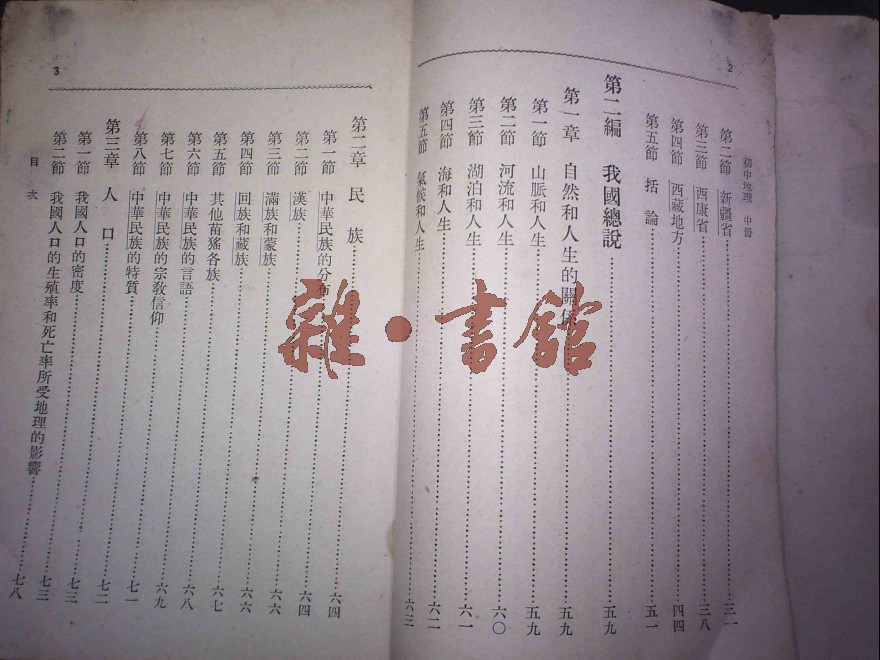 2
初中地理 中冊
第二節 新疆省……三一
第三節 西康省……三八
第四節 西藏地方……四四
第五節 括論……五一
第二編 我國總說……五九
第一章 自然和人生的關係……五九
第一節 山脈和人生……五九
第二節 河流和人生……六〇
第三節 湖泊和人生……六一
第四節 海和人生……六二
第五節 氣候和人生……六三
3
第二章 民族……六四
第一節 中華民族的分布……六四
第二節 漢族……六六
第三節 滿族和蒙族……六六
第四節 回族和藏族……六七
第五節 其他苗猺各族……六八
第六節 中華民族的言語……六九
第七節 中華民族的宗教信仰……七一
第八節 中華民族的特質……七二
第三章 人口……七三
第一節 我國人口的密度……七三
第二節 我國人口的生殖率和死亡率所受地理的影響……七八
目次
雜·書館